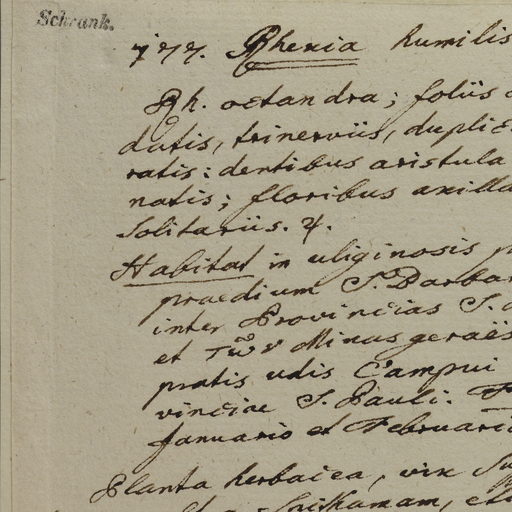 Schrank.
7277. Rhexia humilis
Rh. octandra; foliis
datis, trinerviis, duplice
ratis: dentibus aristula
natis; floribus axilla
solitariis. ♃.
Habitat in uliginosis p
praedium S. Barbar
inter Provincias S.
et τῶν Minas geraës
pratis udis Campui
vinciae S. Pauli.
Januario et Februario
Planta herbacea, vix su
spithamam,